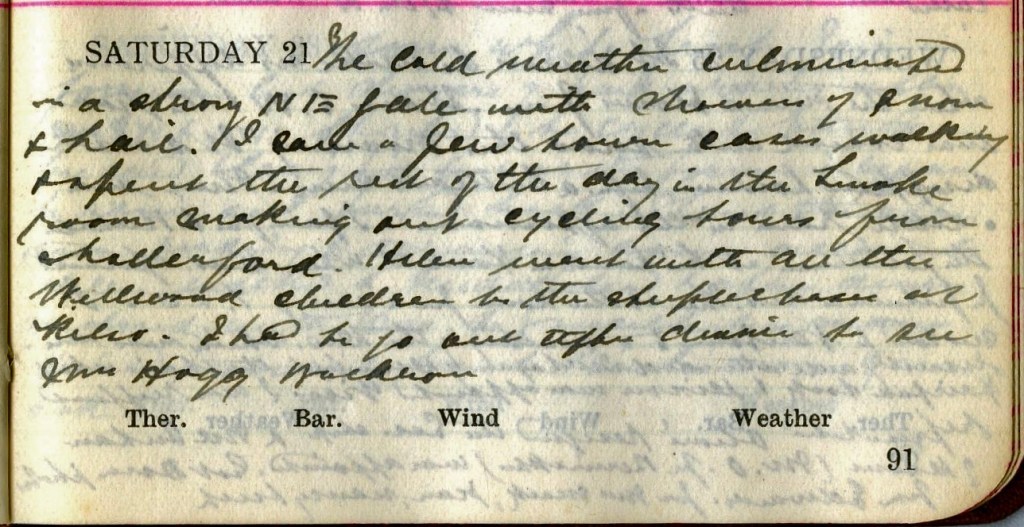 SATURDAY 21 The cold weather culminated
in a strong NE gale with showers of snow
& hail. I saw a few town cases walking
& spent the rest of the day in the Smoke
room making out cycling tours from
Chollerford. Helen went with all the
Wellwood children to the steeplechases at
Kelso. I had to go out after dinner to see
Mrs Hogg
Ther. Bar. Wind Weather
91